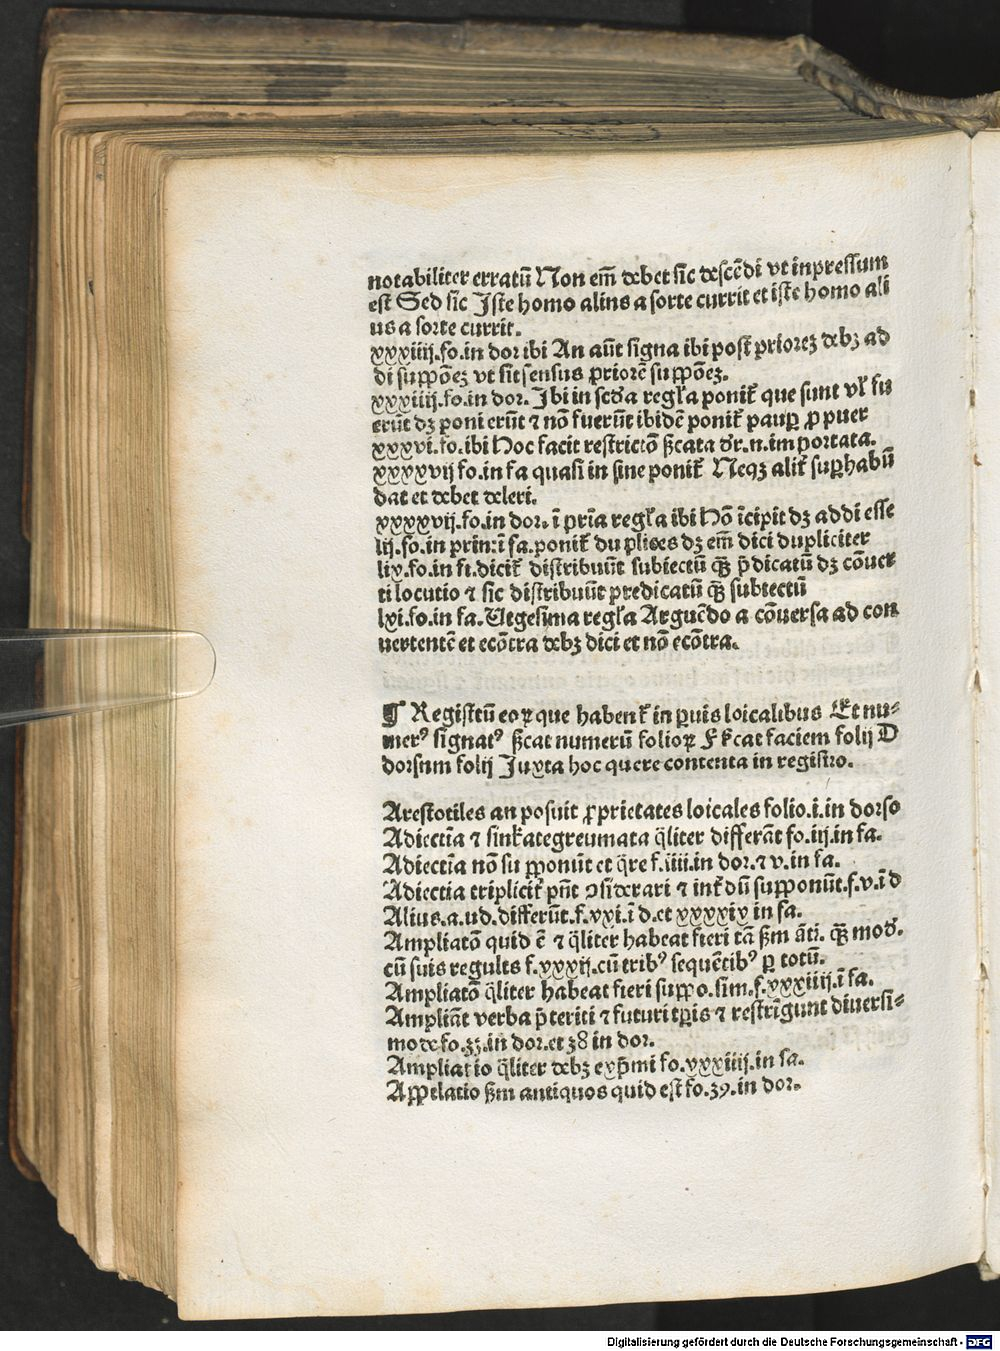 notabiliter erratū Non em̄ debet sic descēdi vt inpressum
est Sed sic Iste homo alius a sorte currit et iste homo ali
us a sorte currit.
xxxiiij.fo.in dor ibi An aūt signa ibi post priorez debz ad
di suppōez vt sit sensus priorē suppōez.
xxxiiij.fo.in dor. Ibi in scd'a regl'a ponit̄ que sunt vl' fu
erūt dz poni erūt ⁊ nō fuerūt ibidē ponit̄ paup̱ ꝓ puer
xxxvi.fo.ibi Hoc facit restrictō sīcata dr̄.n.importata.
xxxxvij fo.in fa quasi in fine ponit̄ Neqz alit̄ suꝑhabū
dat et debet deleri.
xxxxvij.fo.in dor. ī pria regl'a ibi Hō īcipit dz addi esse
lij.fo.in prin:ī fa.ponit̄ duplices dz em̄ dici dupliciter
lix.fo.in fi.dicit̄ distribuūt subiectū qꝫ p̄dicatū dz cōuer
ti locutio ⁊ sic distribuūt predicatū qꝫ subiectū
lxi.fo.in fa. Uigesima regl'a Arguēdo a cōuersa ad con
uertentē et ecōtra debz dici et nō ecōtra.
¶ Registrū eoꝝ que habent̄ in ꝑuis loicalibus Et nu-
merꝰ signatꝰ sīcat numerū folioꝝ F sīcat faciem folij D
dorsum folij Iuxta hoc quere contenta in registro.
Arestotiles an posuit ꝓprietates loicales folio.i.in dorso
Adiectīa ⁊ sinkategreumata q̄liter differāt fo.iij.in fa.
Adiectīa nō supponūt et q̄re f.iiii.in dor.⁊ v.in fa.
Adiectia triplicit̄ pn̄t ↄsiderari ⁊ int̄dū supponūt.f.v.ī d
Alius.a.ud.differūt.f.xxi.ī d.et xxxxix in fa.
Ampliatō quid ē ⁊ q̄liter habeat fieri tā sm̄ āti. qꝫ mod'.
cū suis regulis f.xxxij.cū tribꝰ sequētibꝰ ꝑ totū.
Ampliatō q̄liter habeat fieri suppo.sim.f.xxxiiij.ī fa.
Ampliāt verba p̄teriti ⁊ futuri tꝑis ⁊ restrīgunt diuersi-
mode fo.33.in dor.et 38 in dor.
Ampliatio q̄liter debz exp̄mi fo.xxxiiij.in fa.
Appellatio sm̄ antiquos quid est fo.39.in dor.
Digitalisierung gefördert durch die Deutsche Forschungsgemeinschaft - DFG